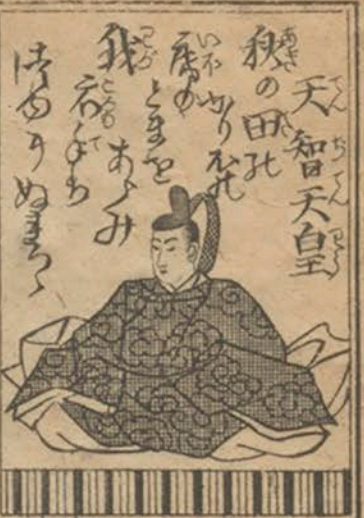 天智天皇
秋の田の
かりほの
庵の
とまを
あらみ
我
衣手は
つゆにぬれつゝ